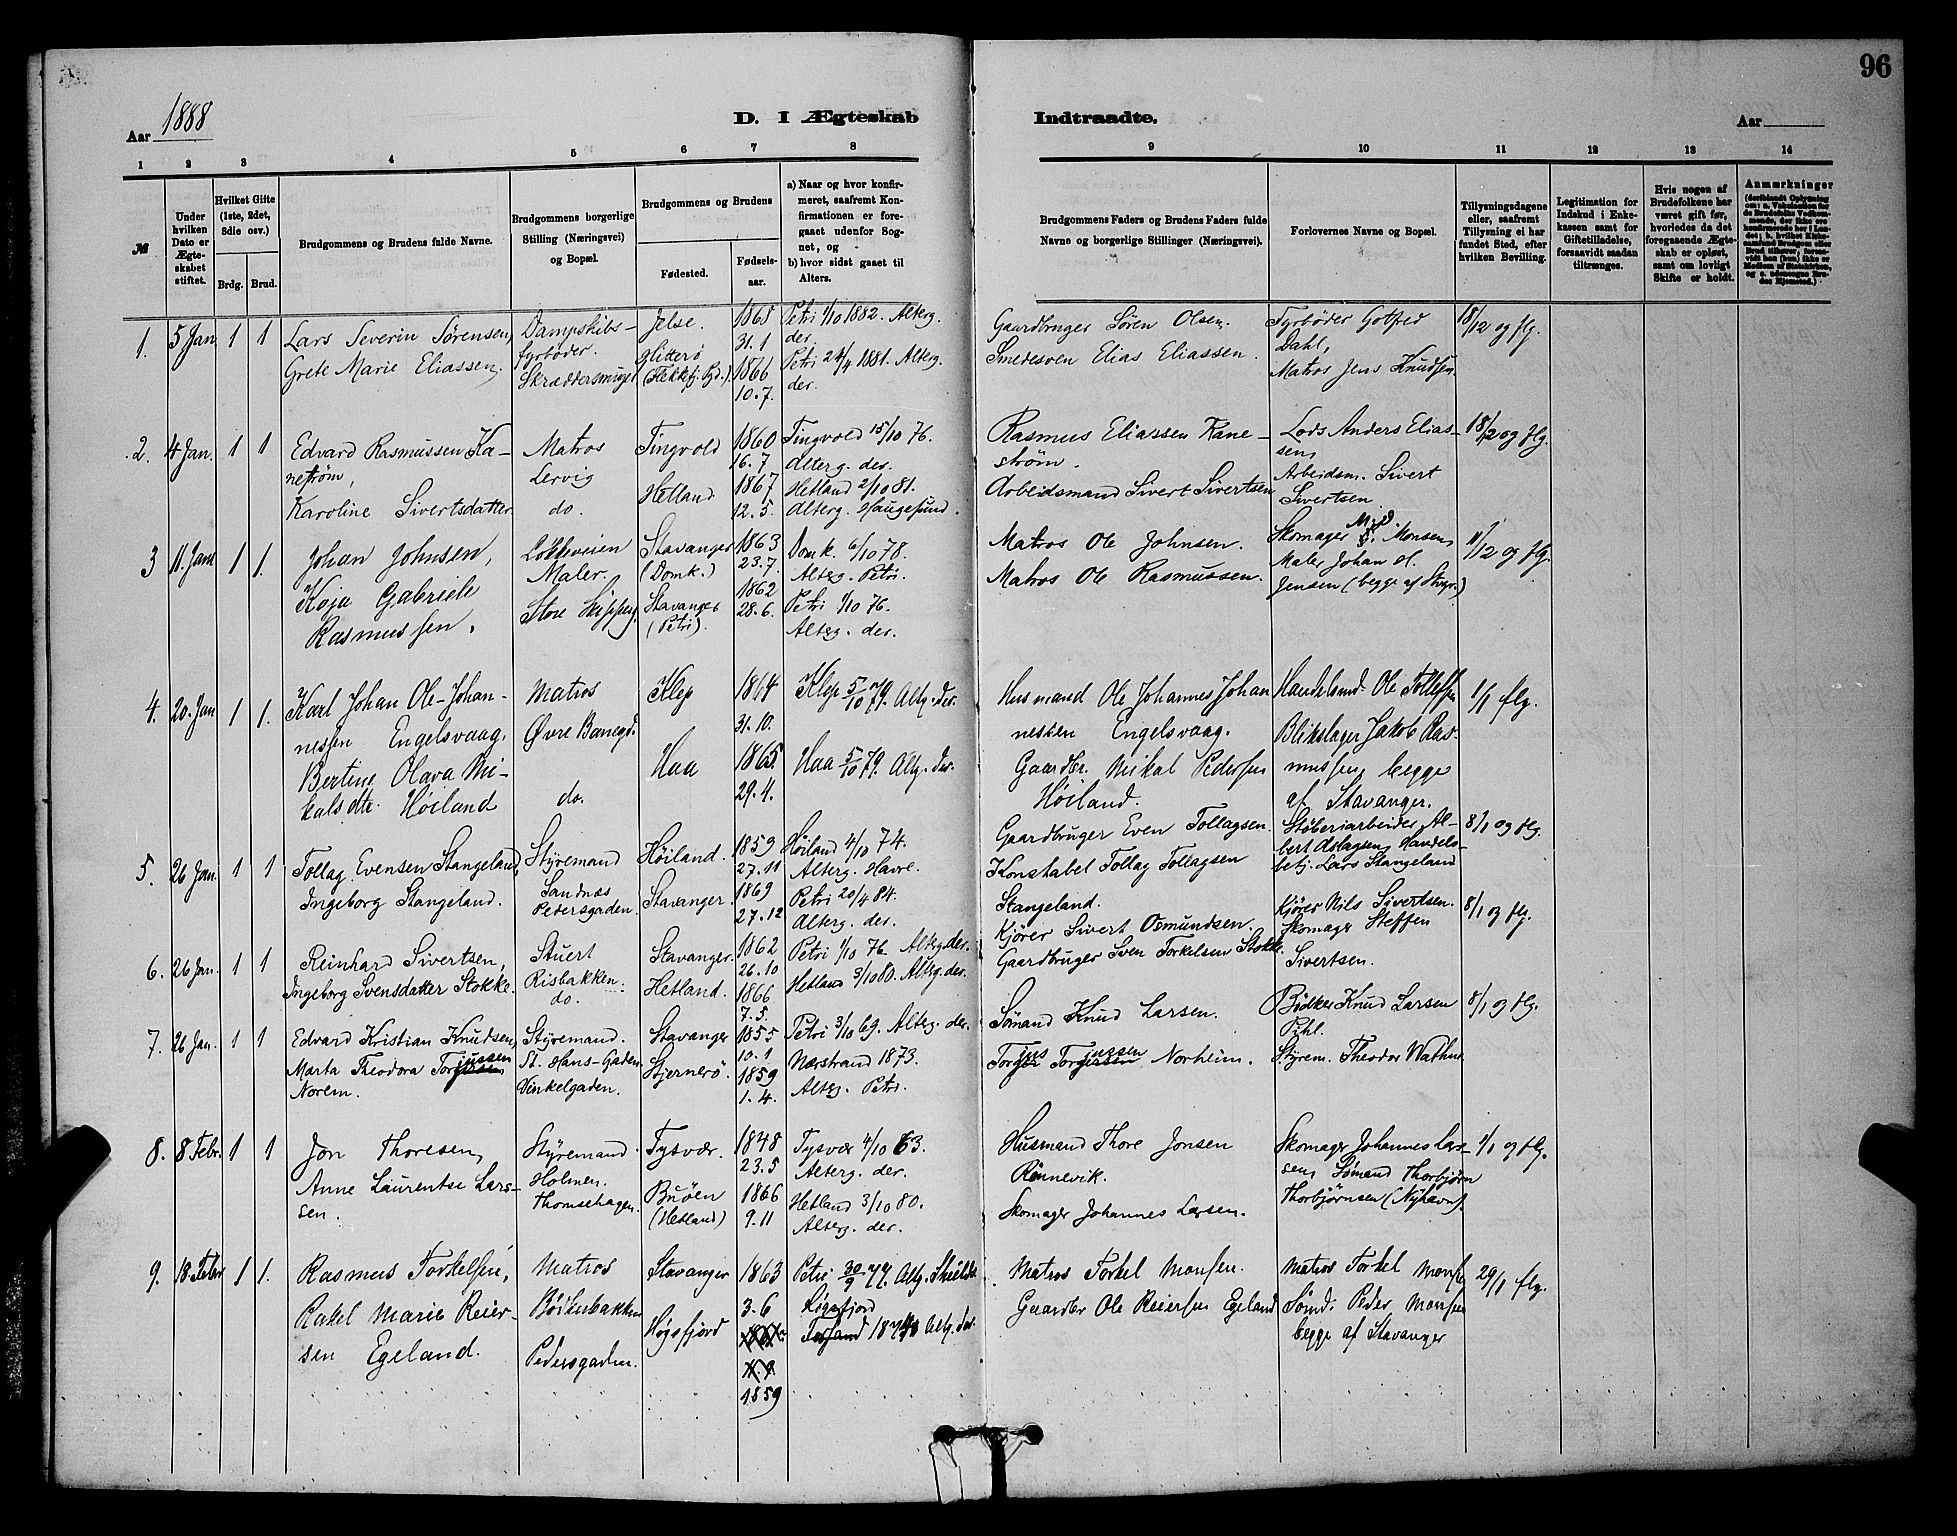 96
Aar 1888
D. I Ægteskab Indtraadte.
Aar
1 2 3 4 5 6 7 8 9 10 11 12 13 14
№
Under hvilken Dato er Ægteskabet stiftet.
Hvilket Gifte (1ste, 2det, 3die osv.)
Brdg. Brud.
Brudgommens og Brudens fulde Navne.
Brudgommens borgerlige Stilling (Næringsvei) og Bopæl.
Brudgommens og Brudens
Fødested.
Fødselsaar.
a) Naar og hvor konfirmeret, saafremt Konfirmationen er foregaaet udenfor Sognet, og
b) hvor sidst gaaet til Alters.
Brudgommens Faders og Brudens Faders fulde Navne og borgerlige Stillinger (Næringsvei).
Forlovernes Navne og Bopæl.
Tillysningsdagene eller, saafremt Tillysning ei har fundet Sted, efter hvilken Bevilling.
Legitimation for Indskud i Enkekassen samt for Giftetilladelse, forsaavidt saadan tiltrænges.
Hvis nogen af Brudefolkene har været gift før, hvorledes da det foregaaende Ægteskab er opløst, samt om lovligt Skifte er holdt.
Anmærkninger
1. 5 Jan 1 1
Lars Severin Sørensen,
Grete Marie Eliassen.
Dampskibs-
fyrbøder.
Skræddersmuget
Jelse.
Hitterø
(Flekkefj. Pgd.)
1865
31.1
1866
10.7.
Petri 1/10 1882. Alterg.
der.
Petri 24/4 1881. Alterg.
der.
Gaardbruger Sören Olsen.
Smedesven Elias Eliassen.
Fyrbøder Gotfred
Dahl,
Matros Jens Knudsen.
18/12 og flg.
2. 4 Jan. 1 1
Edvard Rasmussen Ka-
nestrøm,
Karoline Sivertsdatter
Matros
Lervig
do.
Tingvold
Hetland
1860
16.7
1867
12.5.
Tingvold 15/10 76.
Alterg. der.
Hetland 2/10 81.
Alterg. Haugesund.
Rasmus Eliassen Kane-
strøm.
Arbeidsmand Sivert Sivertsen
Lods Anders Elias-
sen,
Arbeidsm. Sivert
Sivertsen
18/12 og flg.
3 11. Jan 1 1.
Johan Johnsen,
Kaja Gabriele
Rasmussen.
Løkkeveien
Maler.
Store Skipperg.
Stavanger
(Domk.)
Stavanger
(Petri).
1863
23.7.
1862
28.6.
Domk. 6/10 78.
Alterg. Petri.
Petri 1/10 76.
Alterg. der.
Matros Ole Johnsen.
Matros Ole Rasmussen.
Skomager Monsen,
Maler Johan
Jensen (begge af Stvgr.)
/12 og flg.
4. 20. Jan 1 1.
Karl Johan Ole-Johan-
nessen Engelsvaag.
Bertine Olava Mi-
kalsdtr. Høiland
Matros
Øvre Banegd.
do.
Klep
Haa
1864
31.10.
1865.
29.4.
Klep 5/10 79. Altg. der.
Haa 5/10 79. Altg. der.
Husmand Ole Johannes Johan
nessen Engelsvaag.
Gaardbr. Mikal Pedersen
Høiland.
Handelsmd. Ole Tollefsen
Blikslager Jakob Ras-
mussen, begge
af Stavanger.
1/1 flg.
5. 26 Jan. 1 1
Tollag Evensen Stangeland,
Ingeborg Stangeland.
Styremand
Sandnæs
Pedersgaden.
Høiland.
Stavanger.
1859
27.11
1869
27.12
Høiland 4/10 74.
Alterg. Havre.
Petri 20/4 84.
Alterg. der.
Gaardbruger Even Tollagsen.
Konstabel Tollag Tollagsen
Stangeland.
Støberiarbeider Al-
bert Aslagsen, Handels-
betj. Lars Stangeland
8/1 og flg.
6. 26 Jan. 1 1
Reinhard Sivertsen,
Ingeborg Svensdatter Stokke.
Stuert
Risbakken.
do.
Stavanger.
Hetland.
1862
26.10
1866
7.5.
Petri 1/10 76. Alterg. der.
Hetland 3/10 80. Alterg. der.
Kjører Sivert Osmundsen.
Gaardbruger Sven Torkelsen Stokke.
Kjører Nils Sivertsen.
Skomager Steffen
Sivertsen.
8/1 og flg.
7. 26 Jan. 1 1
Edvard Kristian Knudsen,
Marta Theodora Torjussen
Norem.
Styremand.
St. Hans-Gaden.
Vinkelgaden.
Stavanger
Stjernerø.
1855
10.1
1859
1.4.
Petri 3/10 69. Alterg. der.
Nærstrand 1873.
Alterg. Petri.
Sømand Knud Larsen.
Torjus Torjussen Norheim.
Bødker Knud Larsen
Pihl.
Styrem. Theodor Wathne
8/1 og flg.
8. 8 Febr. 1 1
Jon Thoresen,
Anne Laurentse Lars-
sen.
Styremand.
Holmen.
Thomsehagen.
Tysvær.
Buøen
(Hetland)
1848
23.5
1866
9.11
Tysvær 4/10 63.
Alterg. der.
Hetland 3/10 80.
Alterg. der.
Husmand Thore Jonsen
Rönnevik.
Skomager Johannes Larsen.
Skomager Johannes Lar-
sen, Sømand Thorbjørn
Thorbjørnsen (Nyhavn).
1/1 og flg.
9. 18 Febr 1 1.
Rasmus Torkelsen,
Rakel Marie Reier-
sen Egeland.
Matros
Bødkerbakken
Pedersgaden.
Stavanger
Høgsfjord
1863
3.6
1859
Petri 30/9 77. Altg.
Høgsfjord
Altg. der.
Matros Torkel Monsen.
Gaardbr Ole Reiersen Egeland
Matros Torkel Monsen
Sømd. Peder Monsen
begge af Stavanger
29/1 flg.